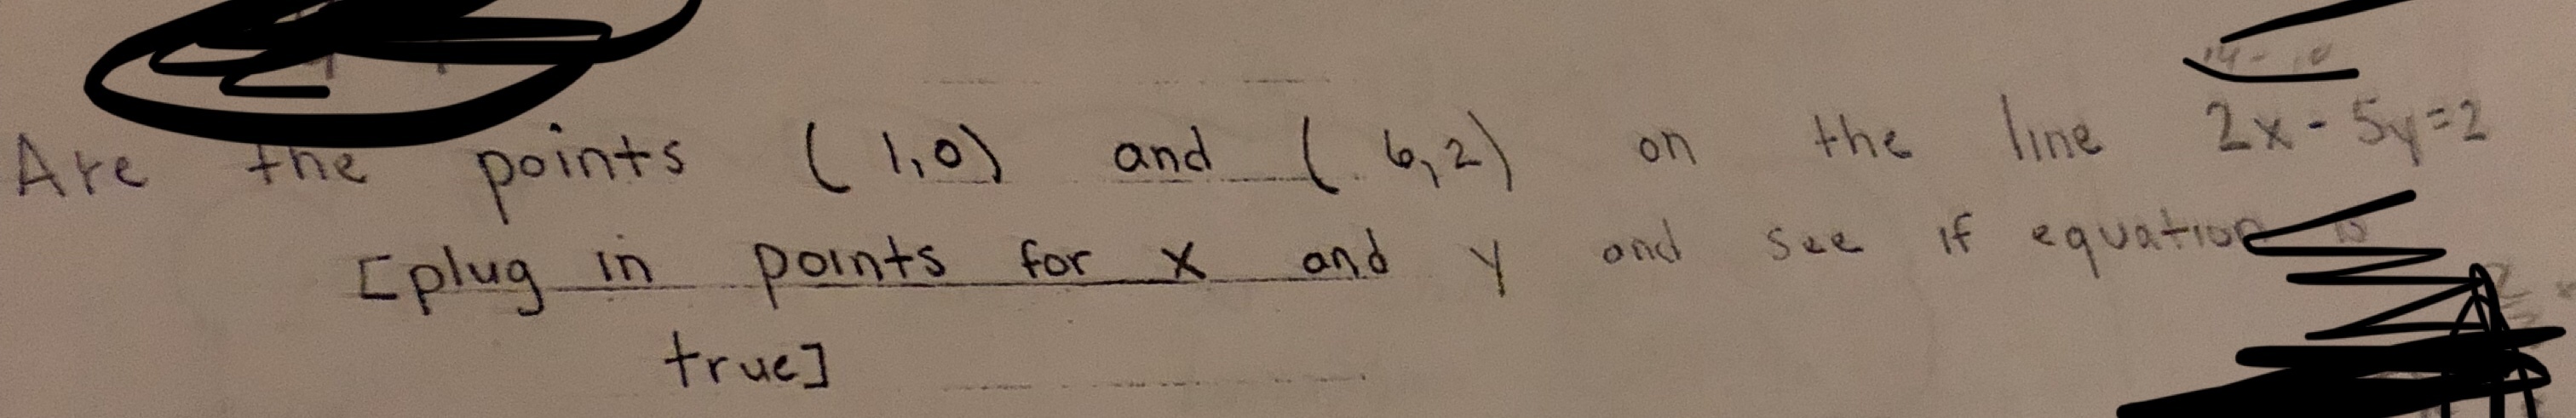 14 - 10
Are the points (1,0) and (6,2) on the line 2x - 5y=2
[plug in points for x and y and see if equation is
true]